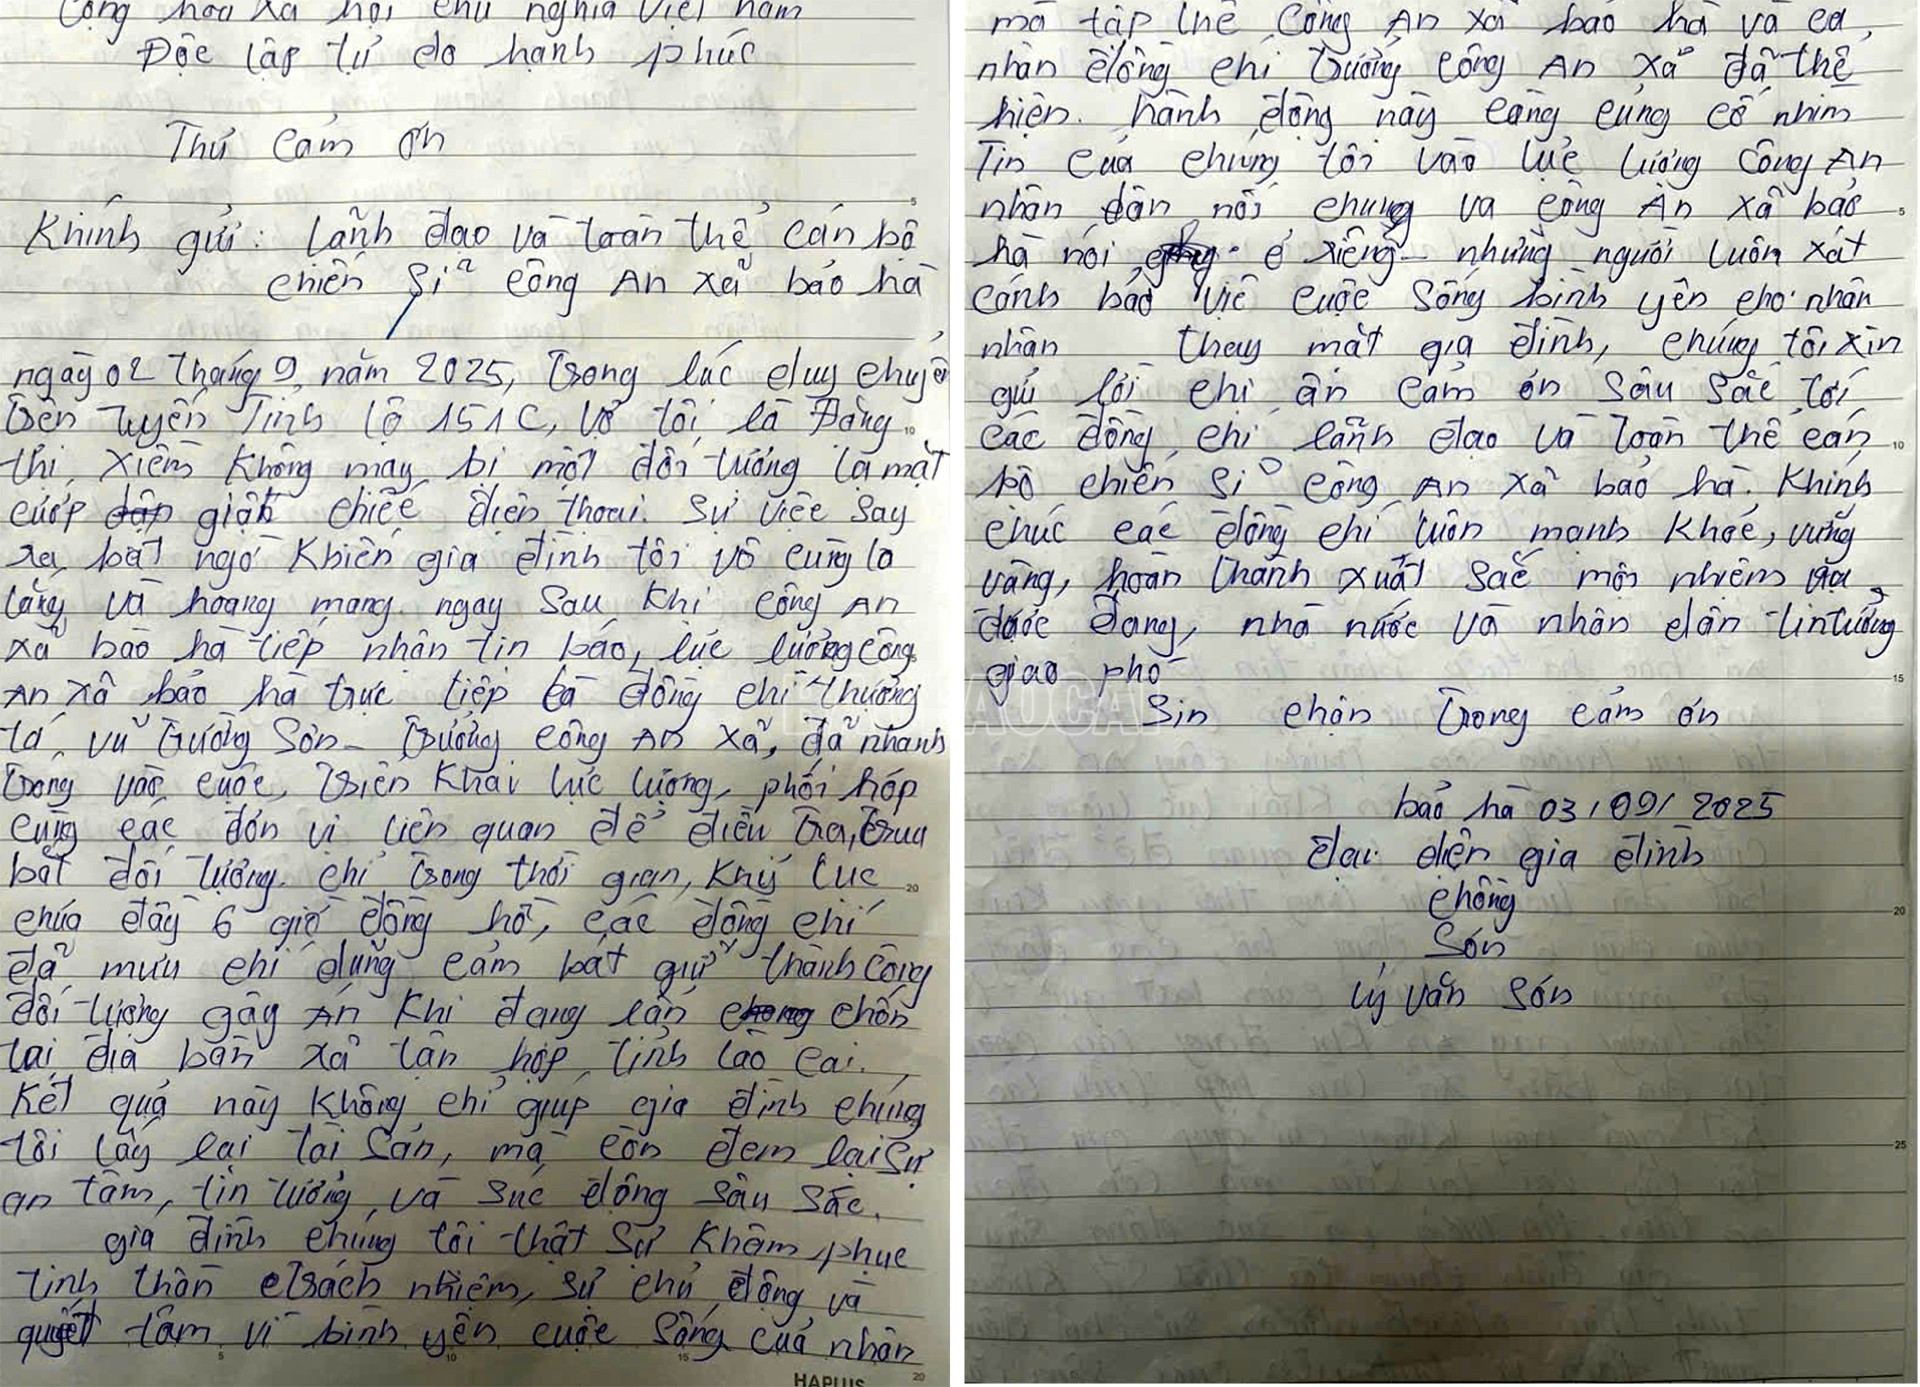 Cộng hòa xã hội chủ nghĩa Việt nam
Độc lập tự do hạnh phúc
Thư cảm ơn
Khính gửi: lãnh đạo và toàn thể cán bộ
chiến sĩ công An xã bảo hà
ngày 02 tháng 9 năm 2025, trong lúc duy chuyển
trên tuyến Tỉnh lộ 151C, vợ tôi là Đặng
thị xiêm không may bị một đối tượng lạ mặt
cướp giật chiếc điện thoại. Sự việc sảy
ra bất ngờ khiến gia đình tôi vô cùng lo
lắng và hoang mang. ngay sau khi công An
xã bảo hà tiếp nhân tin báo, lực lượng công
An xã bảo hà trực tiếp là đồng chí thượng
tá vũ trường Sơn - trưởng công An xã, đã nhanh
tróng vào cuộc, triển khai lực lượng, phối hợp
cùng các đơn vị liên quan để điều tra, truy
bắt đối tượng. chỉ trong thời gian, khỷ lục
chưa đầy 6 giờ đồng hồ, các đồng chí
đã mưu chí dũng cảm bắt giữ thành công
đối tượng gây Án khi đang lẩn chốn
tại địa bàn xã tân hợp, tỉnh lào cai.
Kết quả này không chỉ giúp gia đình chúng
tôi lấy lại tài sản, mà còn đem lại sự
an tâm, tin tưởng và súc động sâu sắc.
gia đình chúng tôi thật sự khâm phục
tinh thần trách nhiệm, sự chủ động và
quyết tâm vì bình yên cuộc sống của nhân
HAPLUS
mà tập thể công An xã bảo hà và cá
nhân đồng chí trưởng công An xã đã thể
hiện. hành động này càng củng cố nhim
Tin của chúng tôi vào lực lượng công An
nhân dân nói chung và công An xã bảo
hà nói riêng - những người luôn xát
cánh bảo việ cuộc sống bình yên cho nhân
nhân thay mặt gia đình, chúng tôi xin
gửi lời chi ân cảm ơn sâu sắc tới
các đồng chí lãnh đạo và toàn thể cán
bộ chiến sĩ công An xã bảo hà. Khính
chúc các đồng chí luôn mạnh khoẻ, vững
vàng, hoàn thành xuất sắc mọi nhiệm vụ
được Đảng, nhà nước và nhân dân tin tưởng
giao phó
Sin chân trọng cảm ơn
bảo hà 03/09/2025
Đại diện gia đình
chồng
Sơn
lý văn Sơn